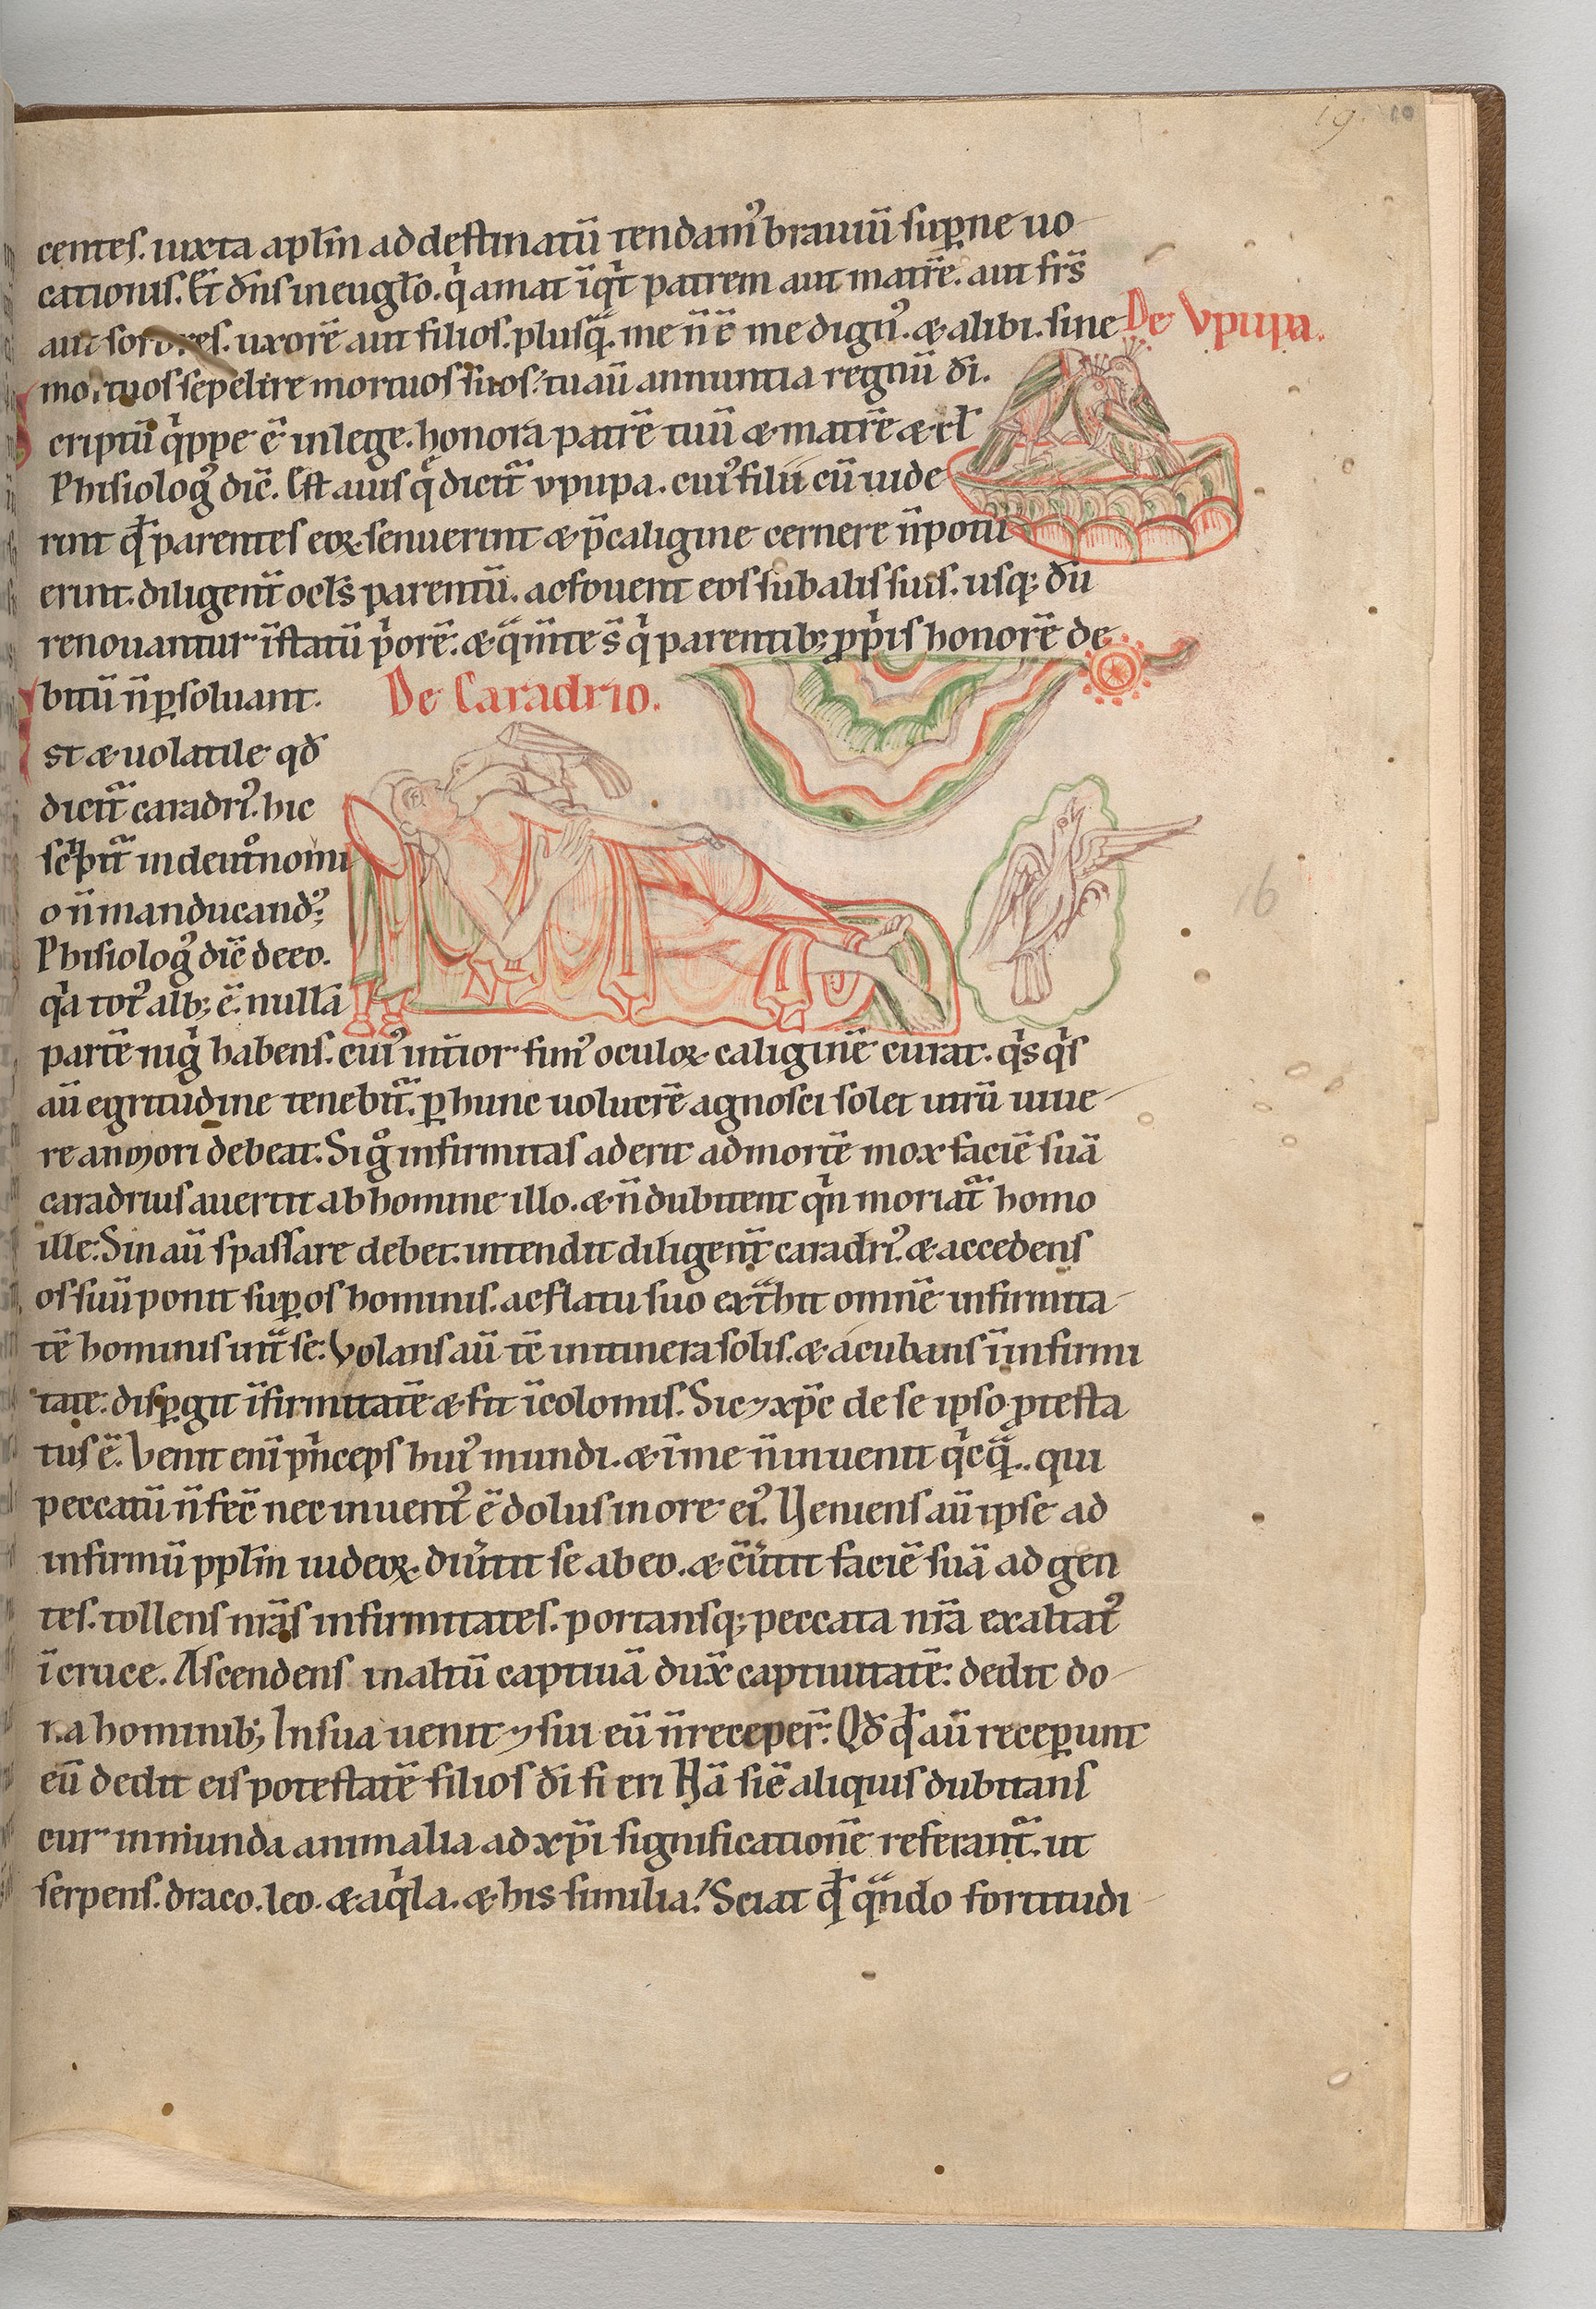 19. 10
centes. iuxta apłm ad destinatū tendam᾽ brauiū sup̱ne uo
cationis. Et dn̄s in eugło. q̇ amat īq̇t patrem aut matrē. aut frs̄
aut sorores. uxorē aut filios. plusq̄. me n̄ ē me dign᾽. æ alibi. sine
De Vpupa.
mortuos sepelire mortuos suos. tu aū annuntia regnū dī.
criptū q̇ppe ē in lege. honora patrē tuū æ matrē æ rł
Phisiolog᾽ dic̄. Est auis q̄ dicit̄ vpupa. cui᾽ filii cū uide
rint qđ parentes eoꝝ senuerint æ p̄ caligine cernere n̄ potu
erint. diligent̄ ocłs parentū. ac fouent eos sub alis suis. usq; dū
renouantur ī statū p̓orē. æ q̄m̄ te s̄ q̇ parentib; ꝓp̓is honorē de
bitū n̄ p̱soluant.
De Caradrio.
st æ uolatile qđ
dicit̄ caradri᾽. hic
sc̓bit̄ in deut̊nomi
o n̄ manducand᾽;
Phisiolog᾽ dic̄ de eo.
q̓a tot᾽ alb; ē. nullā
16
partē nig̓ habens. cui᾽ int̄ior fim᾽ oculoꝝ caliginē curat. q̓s q̓s
aū egritudine tenebit̄. p̱ hunc uolucrē agnosci solet utrū uiue
re an mori debeat. Si g̊ infirmitas aderit ad mortē mox faciē suā
caradrius auertit ab homine illo. æ n̄ dubitent q̓n moriat̄ homo
ille. Sin aū spassare debet. intendit diligent̄ caradri᾽. æ accedens
os suū ponit sup̱ os hominis. ac flatu suo ext̄hit omnē infirmita
tē hominis int̄ se. Volans aū tē in itinera solis. æ acubans ī infirmi
tate. disp̱git īfirmitatē æ fit īcolomis. Sic ⁊ xp̄c de se ipso ꝓtesta
tus ē. Venit enī p̓nceps hui᾽ mundi. æ ī me n̄ inuenit q̓cq̄.. qui
peccatū n̄ fec̄ nec inuent᾽ ē dolus in ore ei᾽. Veniens aū ipse ad
infirmū ppłm iudeoꝝ. diu̓tit se ab eo. æ c̄u̓tit faciē suā ad gen
tes. tollens nr̄as infirmitates. portansq; peccata nr̄a exaltat᾽
ī cruce. Ascendens in altū captiuā dux̄ captiuitatē. dedit do
na hominib; In sua uenit ⁊ sui eū n̄ receper̄. Qđ qđ aū recep̱unt
eū dedit eis potestatē filios dī fieri Hā sic̄ aliquis dubitans
cur inmunda animalia ad xp̄i significationē referant̄. ut
serpens. draco. leo. æ aq̓la. æ his similia. Sciat qđ q̄ndo fortitudi